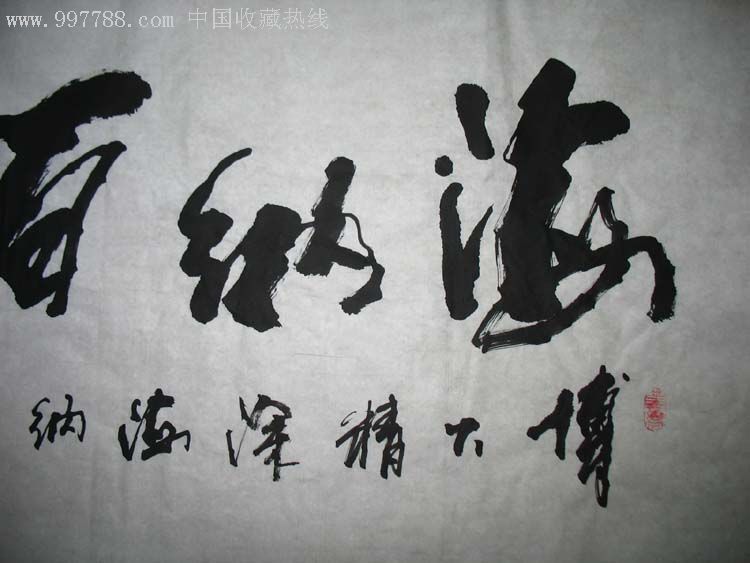 www.997788.com 中国收藏热线
海纳百
博大精深海纳